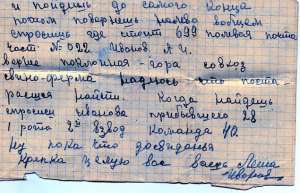 и пойдешь до самого конца
потом повернешь налево вобщем
спросишь где стоит 699 полевая почта
част. № 022 Иванов А. И.
поклонная - гора совхоз
свино-ферма надеюсь что поста
раешся найти. Когда найдешь
спроси Иванова прибывшего 28
1 рота 2й взвод команда 40.
ну пока что досвиданья
целую вас Ваш Леша
Иванов